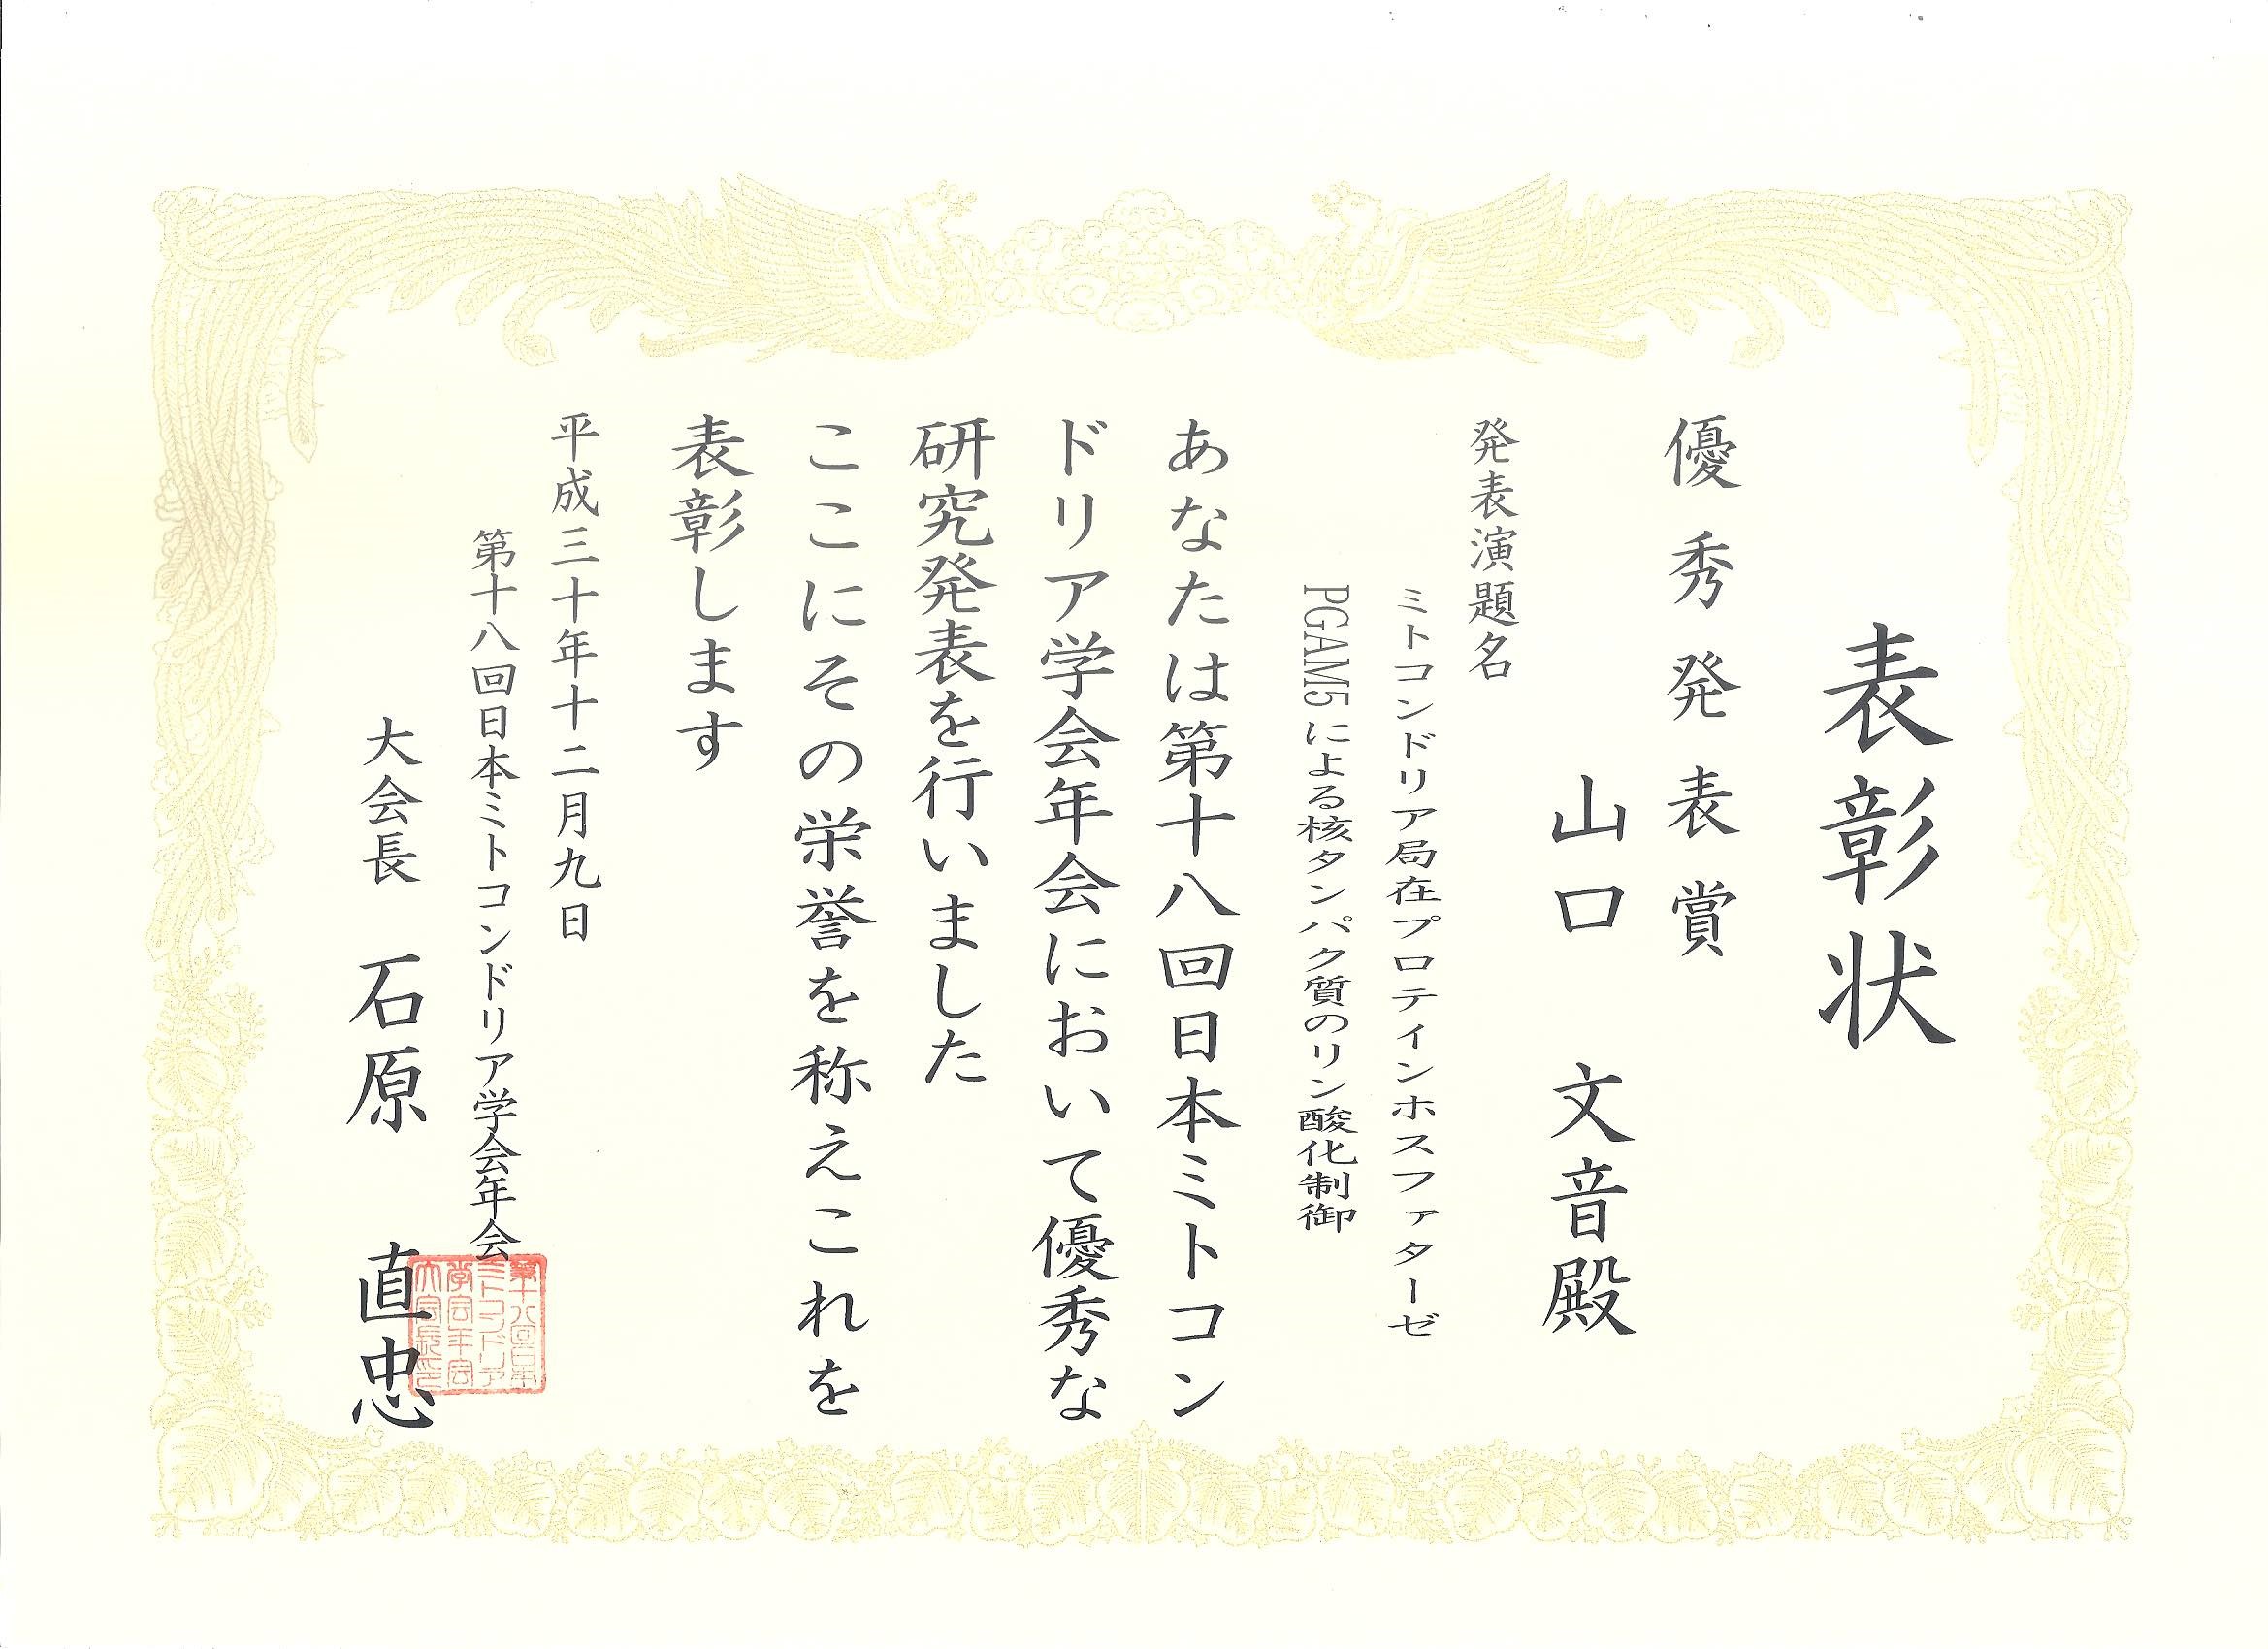 表彰状
優秀発表賞
山口 文音殿
発表演題名
ミトコンドリア局在プロテインホスファターゼ
PGAM5による核タンパク質のリン酸化制御
あなたは第十八回日本ミトコン
ドリア学会年会において優秀な
研究発表を行いました
ここにその栄誉を称えこれを
表彰します
平成三十年十二月九日
第十八回日本ミトコンドリア学会年会
大会長 石原 直忠
第十八回日本
ミトコンドリア
学会年会
大会長之印